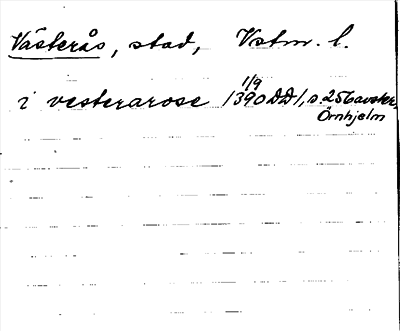 Västerås, stad, Vstm. l.
i vesterarose 1/9 1390 DD 1, s. 256 avskr.
Örnhjelm